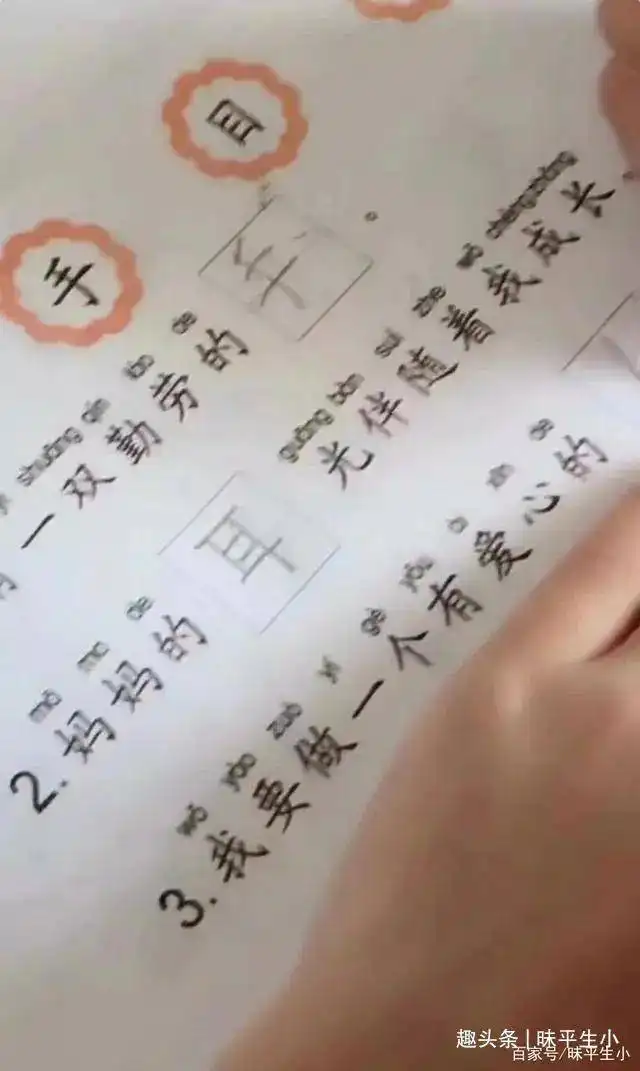 手 目
shuāng qín láo de
一双勤劳的手。
mā ma de guāng bàn suí zhe wǒ chéngzhǎng
2.妈妈的耳光伴随着我成长
wǒ yào zuò yí gè yǒu ài xīn de
3.我要做一个有爱心的
趣头条 | 昧平生小
百家号/昧平生小